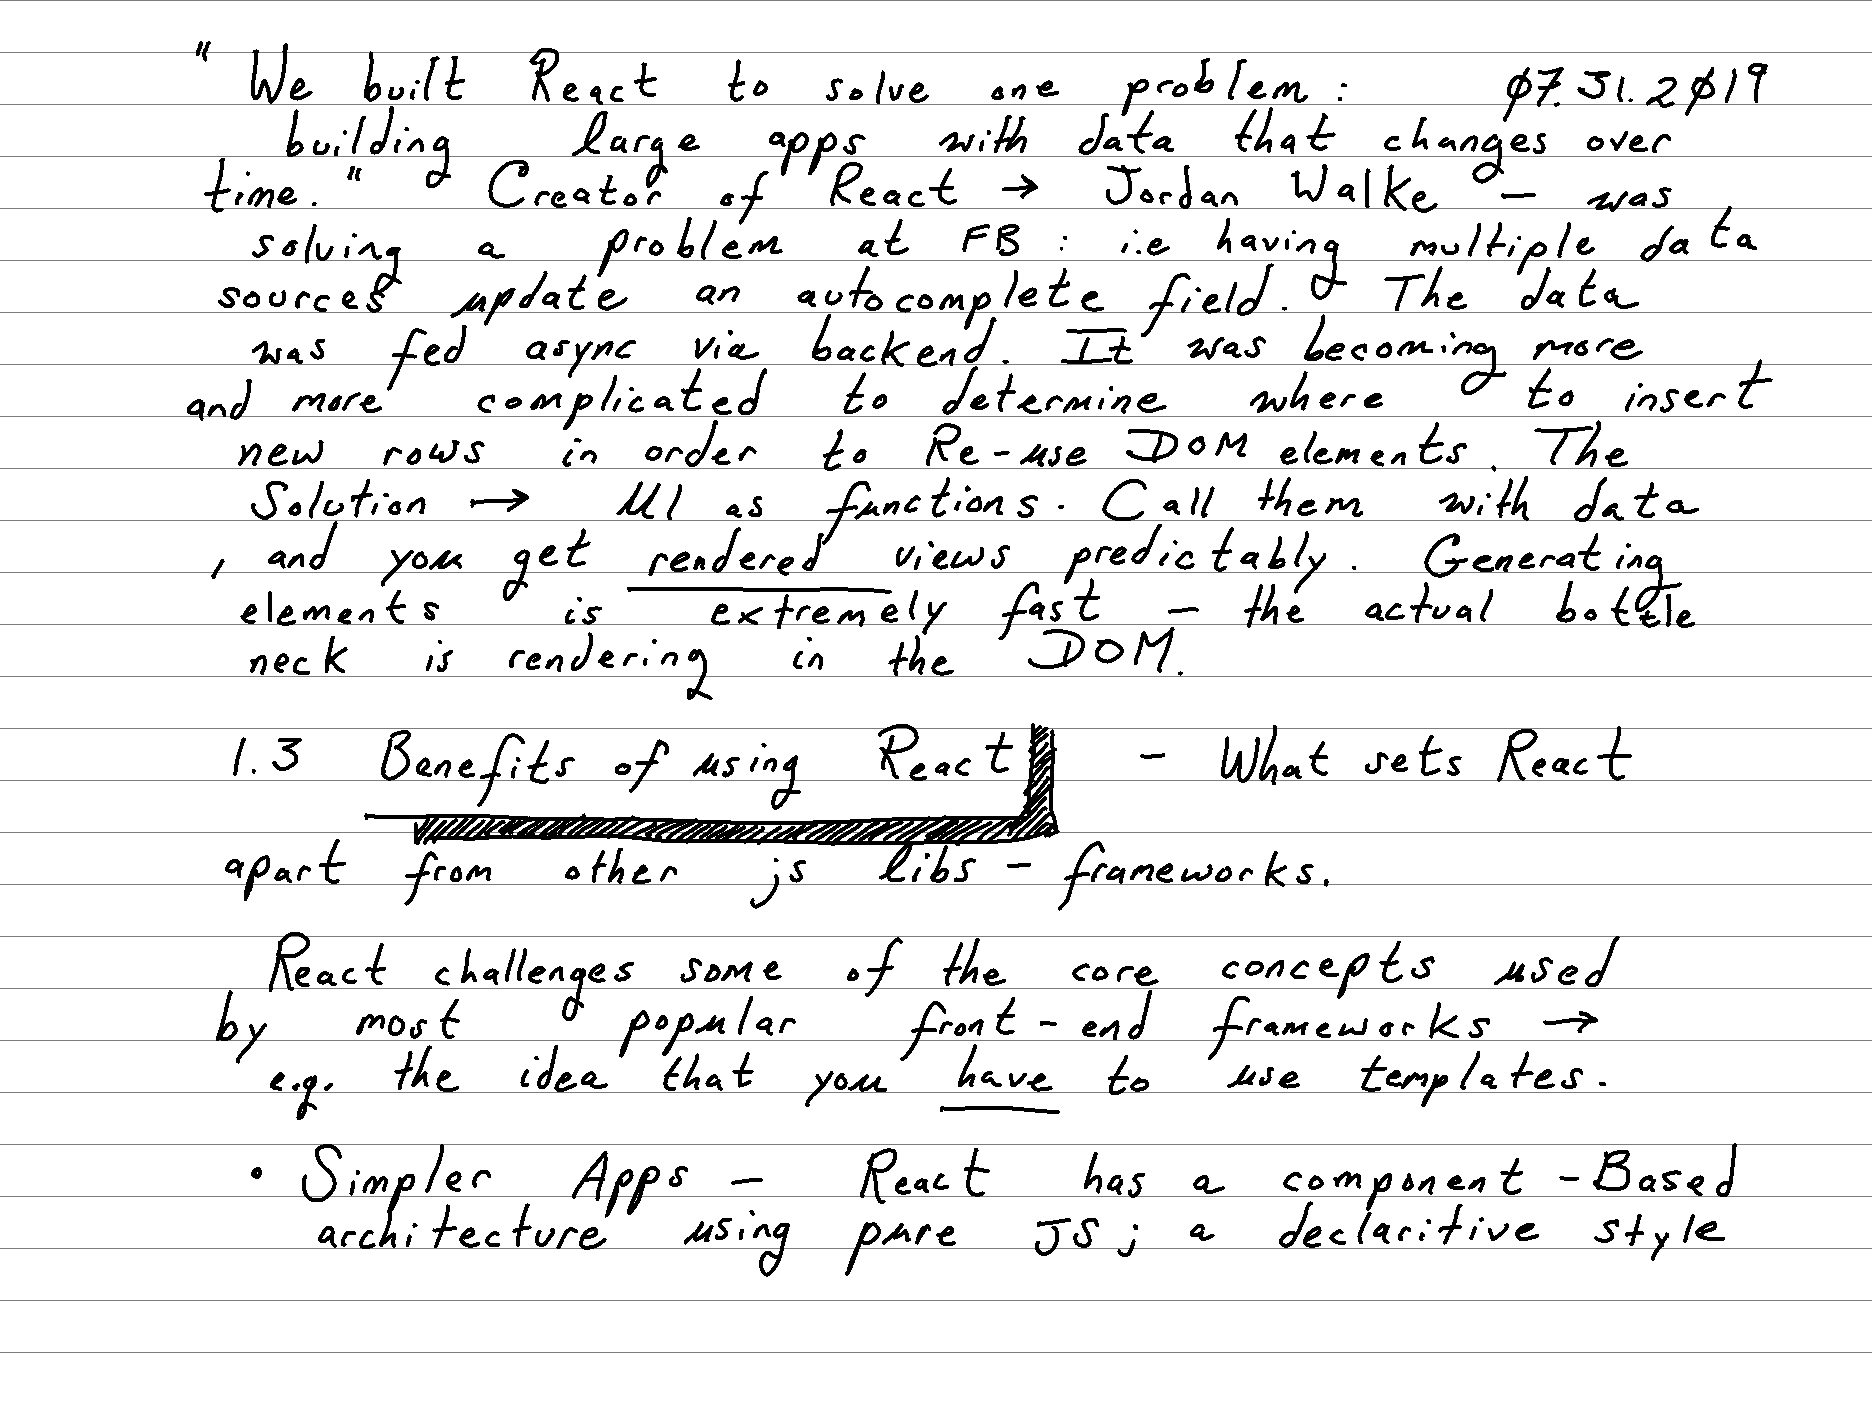 " We built React to solve one problem : 07.31.2019
building large apps with data that changes over
time. " Creator of React → Jordan Walke – was
solving a problem at FB : i.e having multiple data
sources update an autocomplete field. The data
was fed async via backend. It was becoming more
and more complicated to determine where to insert
new rows in order to Re-use DOM elements. The
Solution → UI as functions. Call them with data
, and you get rendered views predictably. Generating
elements is extremely fast – the actual bottle
neck is rendering in the DOM.
1.3 Benefits of using React – What sets React
apart from other js libs – frameworks.
React challenges some of the core concepts used
by most popular front-end frameworks →
e.g. the idea that you have to use templates.
• Simpler Apps – React has a component-Based
architecture using pure JS; a declaritive style